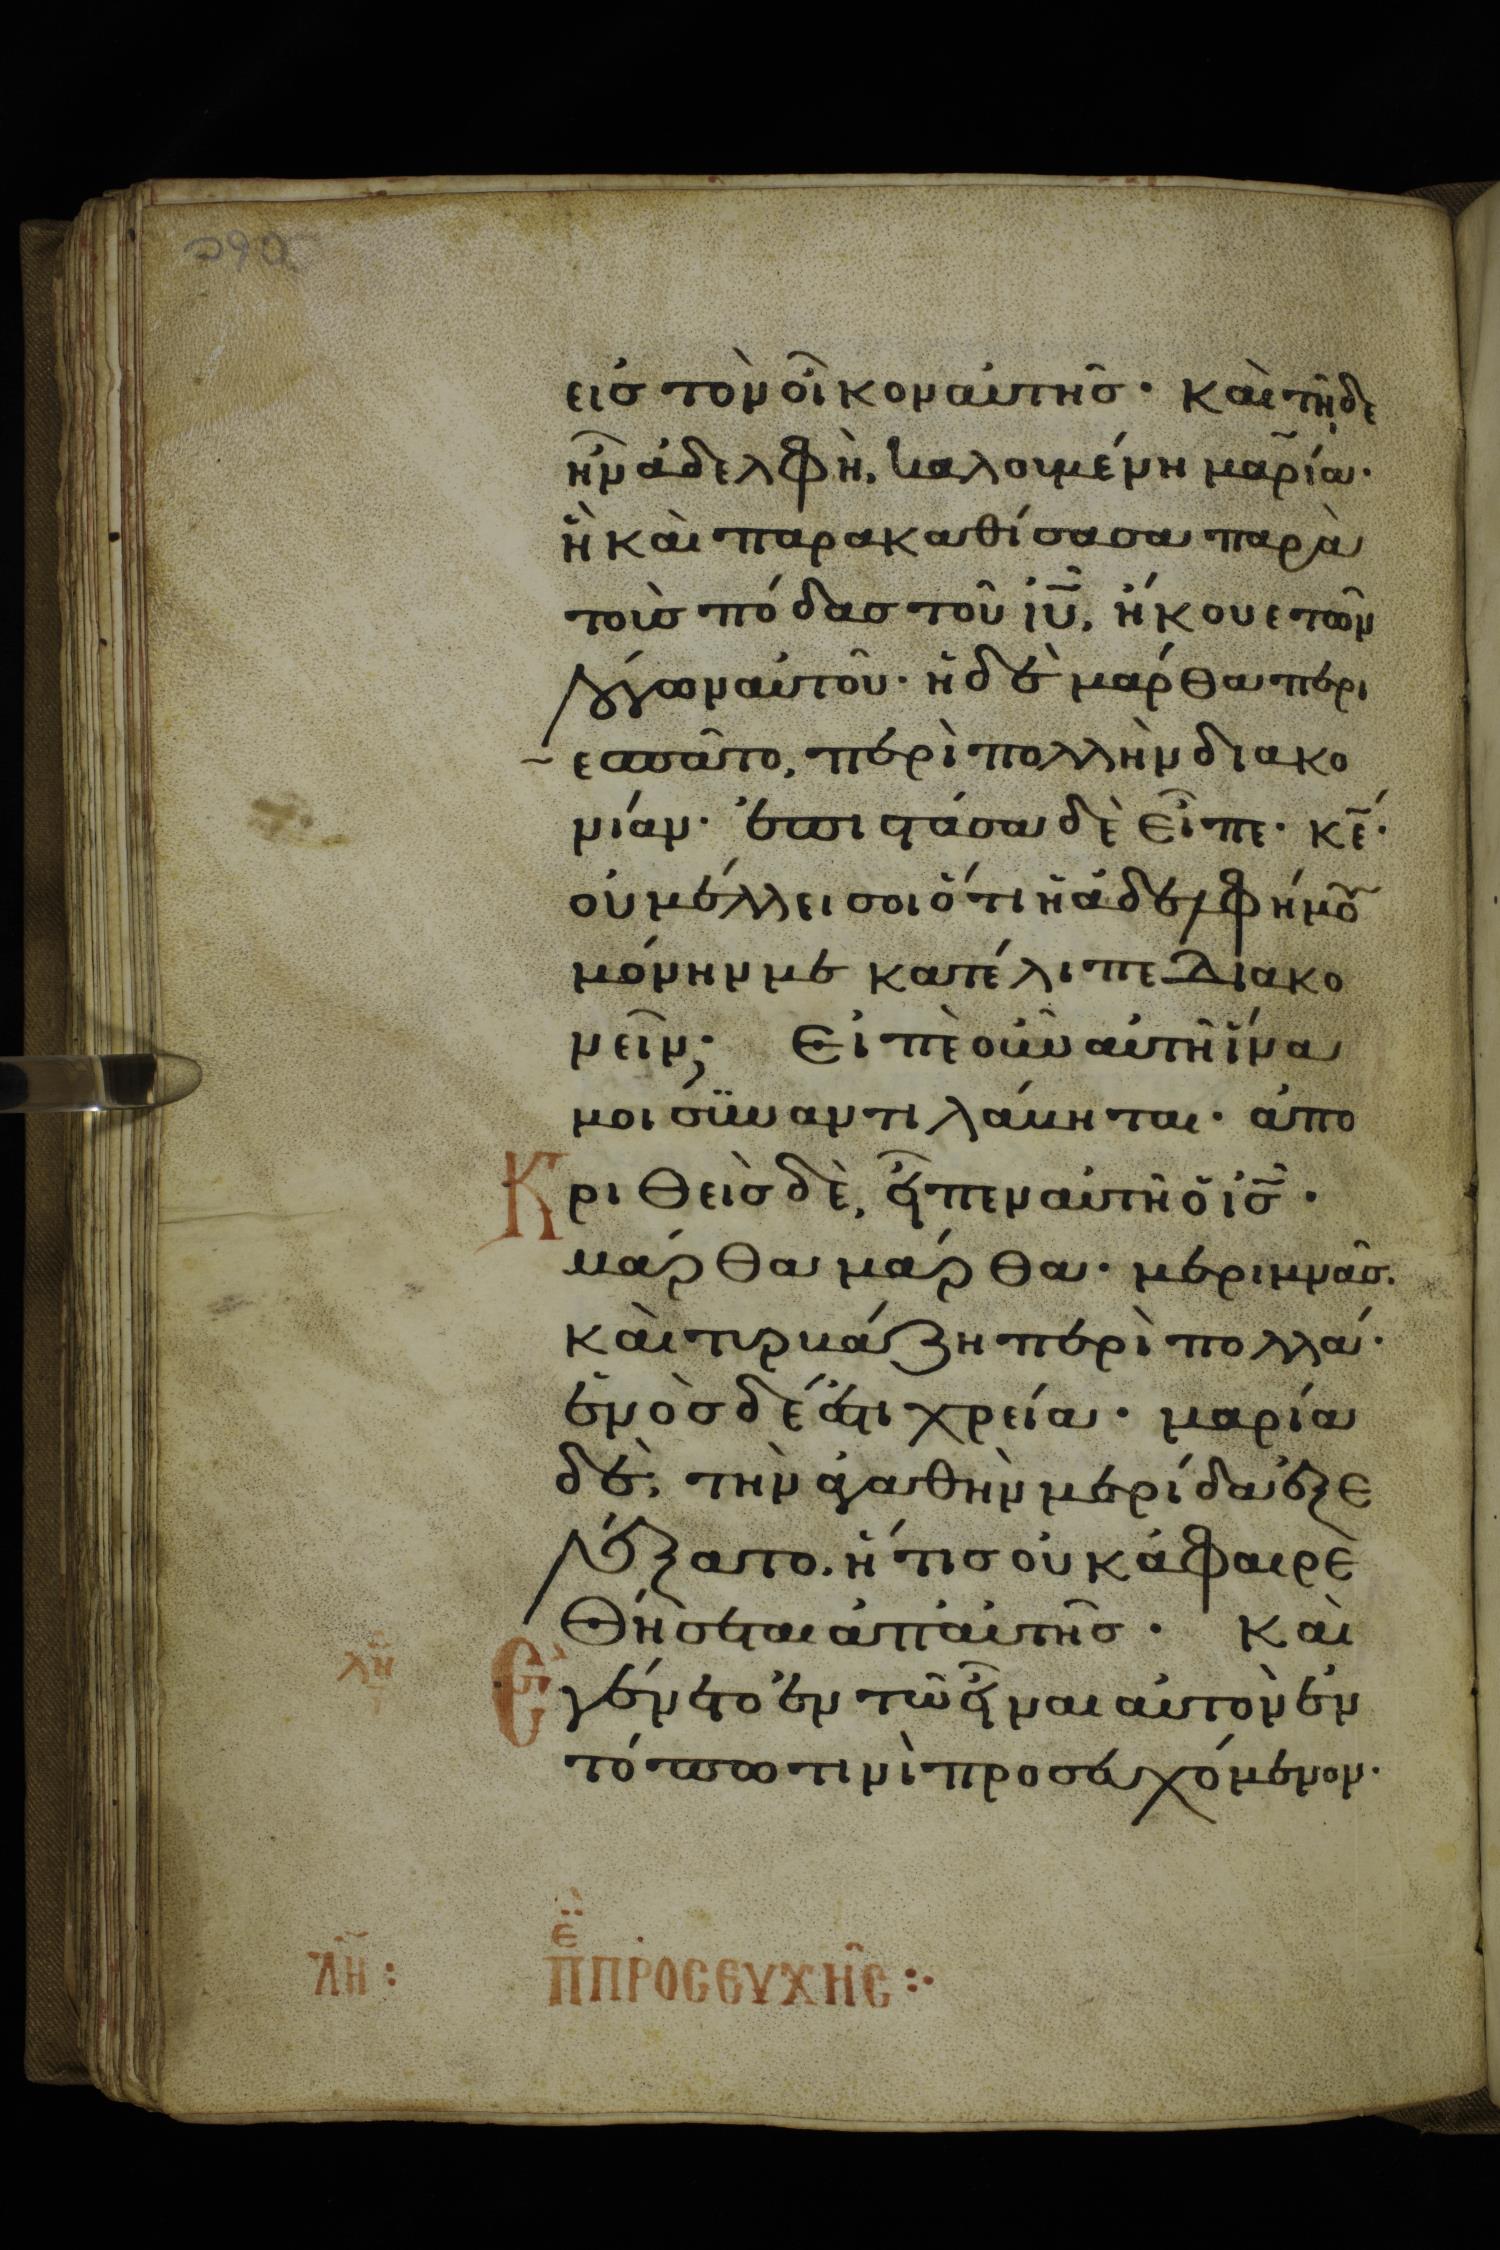 εἰσ τὸν οἶκον αὐτῆσ· καὶ τῆδε
ἦν ἀδελφὴ, καλουμένη μαρία·
ἣ καὶ παρακαθίσασα παρὰ
τοὺσ πόδασ τοῦ ἰῦ, ἤκουε τῶν
λόγων αὐτοῦ· ἡ δὲ μάρθα περι
εσπᾶτο, περὶ πολλὴν διακο
νίαν· ἐπιστάσα δὲ εἶπε· κέ·
οὐ μέλλει σοι ὅτι ἡ ἀδελφή μου
μόνην με κατέλιπε διακο
νεῖν; Εἰπὲ οὖν αὐτῆ ἵνα
μοι συναντιλάβηται· ἀπο
κριθεὶσ δὲ, εἶπεν αὐτῆ ὁ ἰσ·
μάρθα μάρθα· μεριμνᾶσ.
καὶ τυρβάζη περὶ πολλά·
ἑνὸσ δέ ἐστι χρεία· μαρία
δὲ, τὴν ἀγαθὴν μερίδα ἐξε
λέξατο. ἥτισ οὐκ ἀφαιρε
θήσεται ἀπ' αὐτῆσ· Καὶ
λη Εγένετο ἐν τῶ εἶναι αὐτὸν ἐν
τόπω τινὶ προσευχόμενον·
λη: ε
Π ΠΡΟΣΕΥΧΗΣ :·